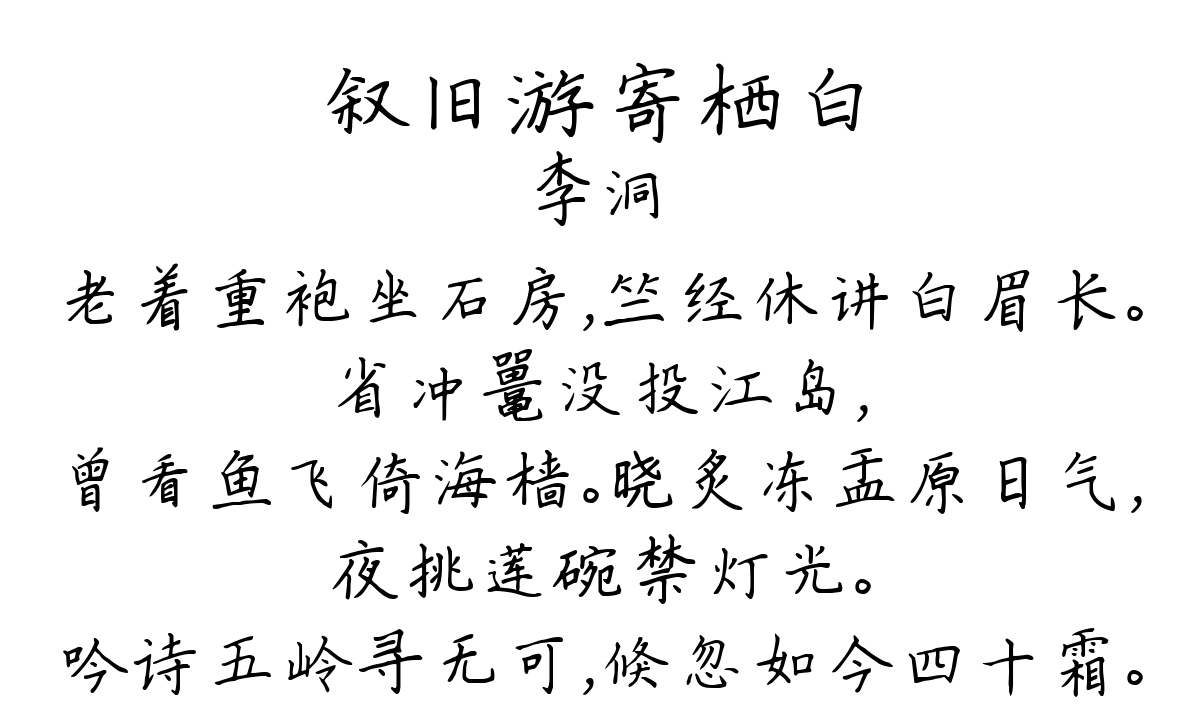 叙旧游寄栖白
李洞
老着重袍坐石房,竺经休讲白眉长。
省冲鼍没投江岛,
曾看鱼飞倚海樯。晓炙冻盂原日气,
夜挑莲碗禁灯光。
吟诗五岭寻无可,倏忽如今四十霜。